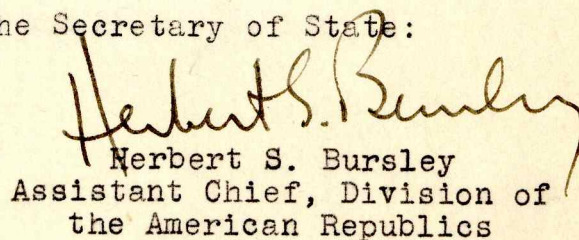 he Secretary of State:
Herbert S. Bursley
Herbert S. Bursley
Assistant Chief, Division of
the American Republics